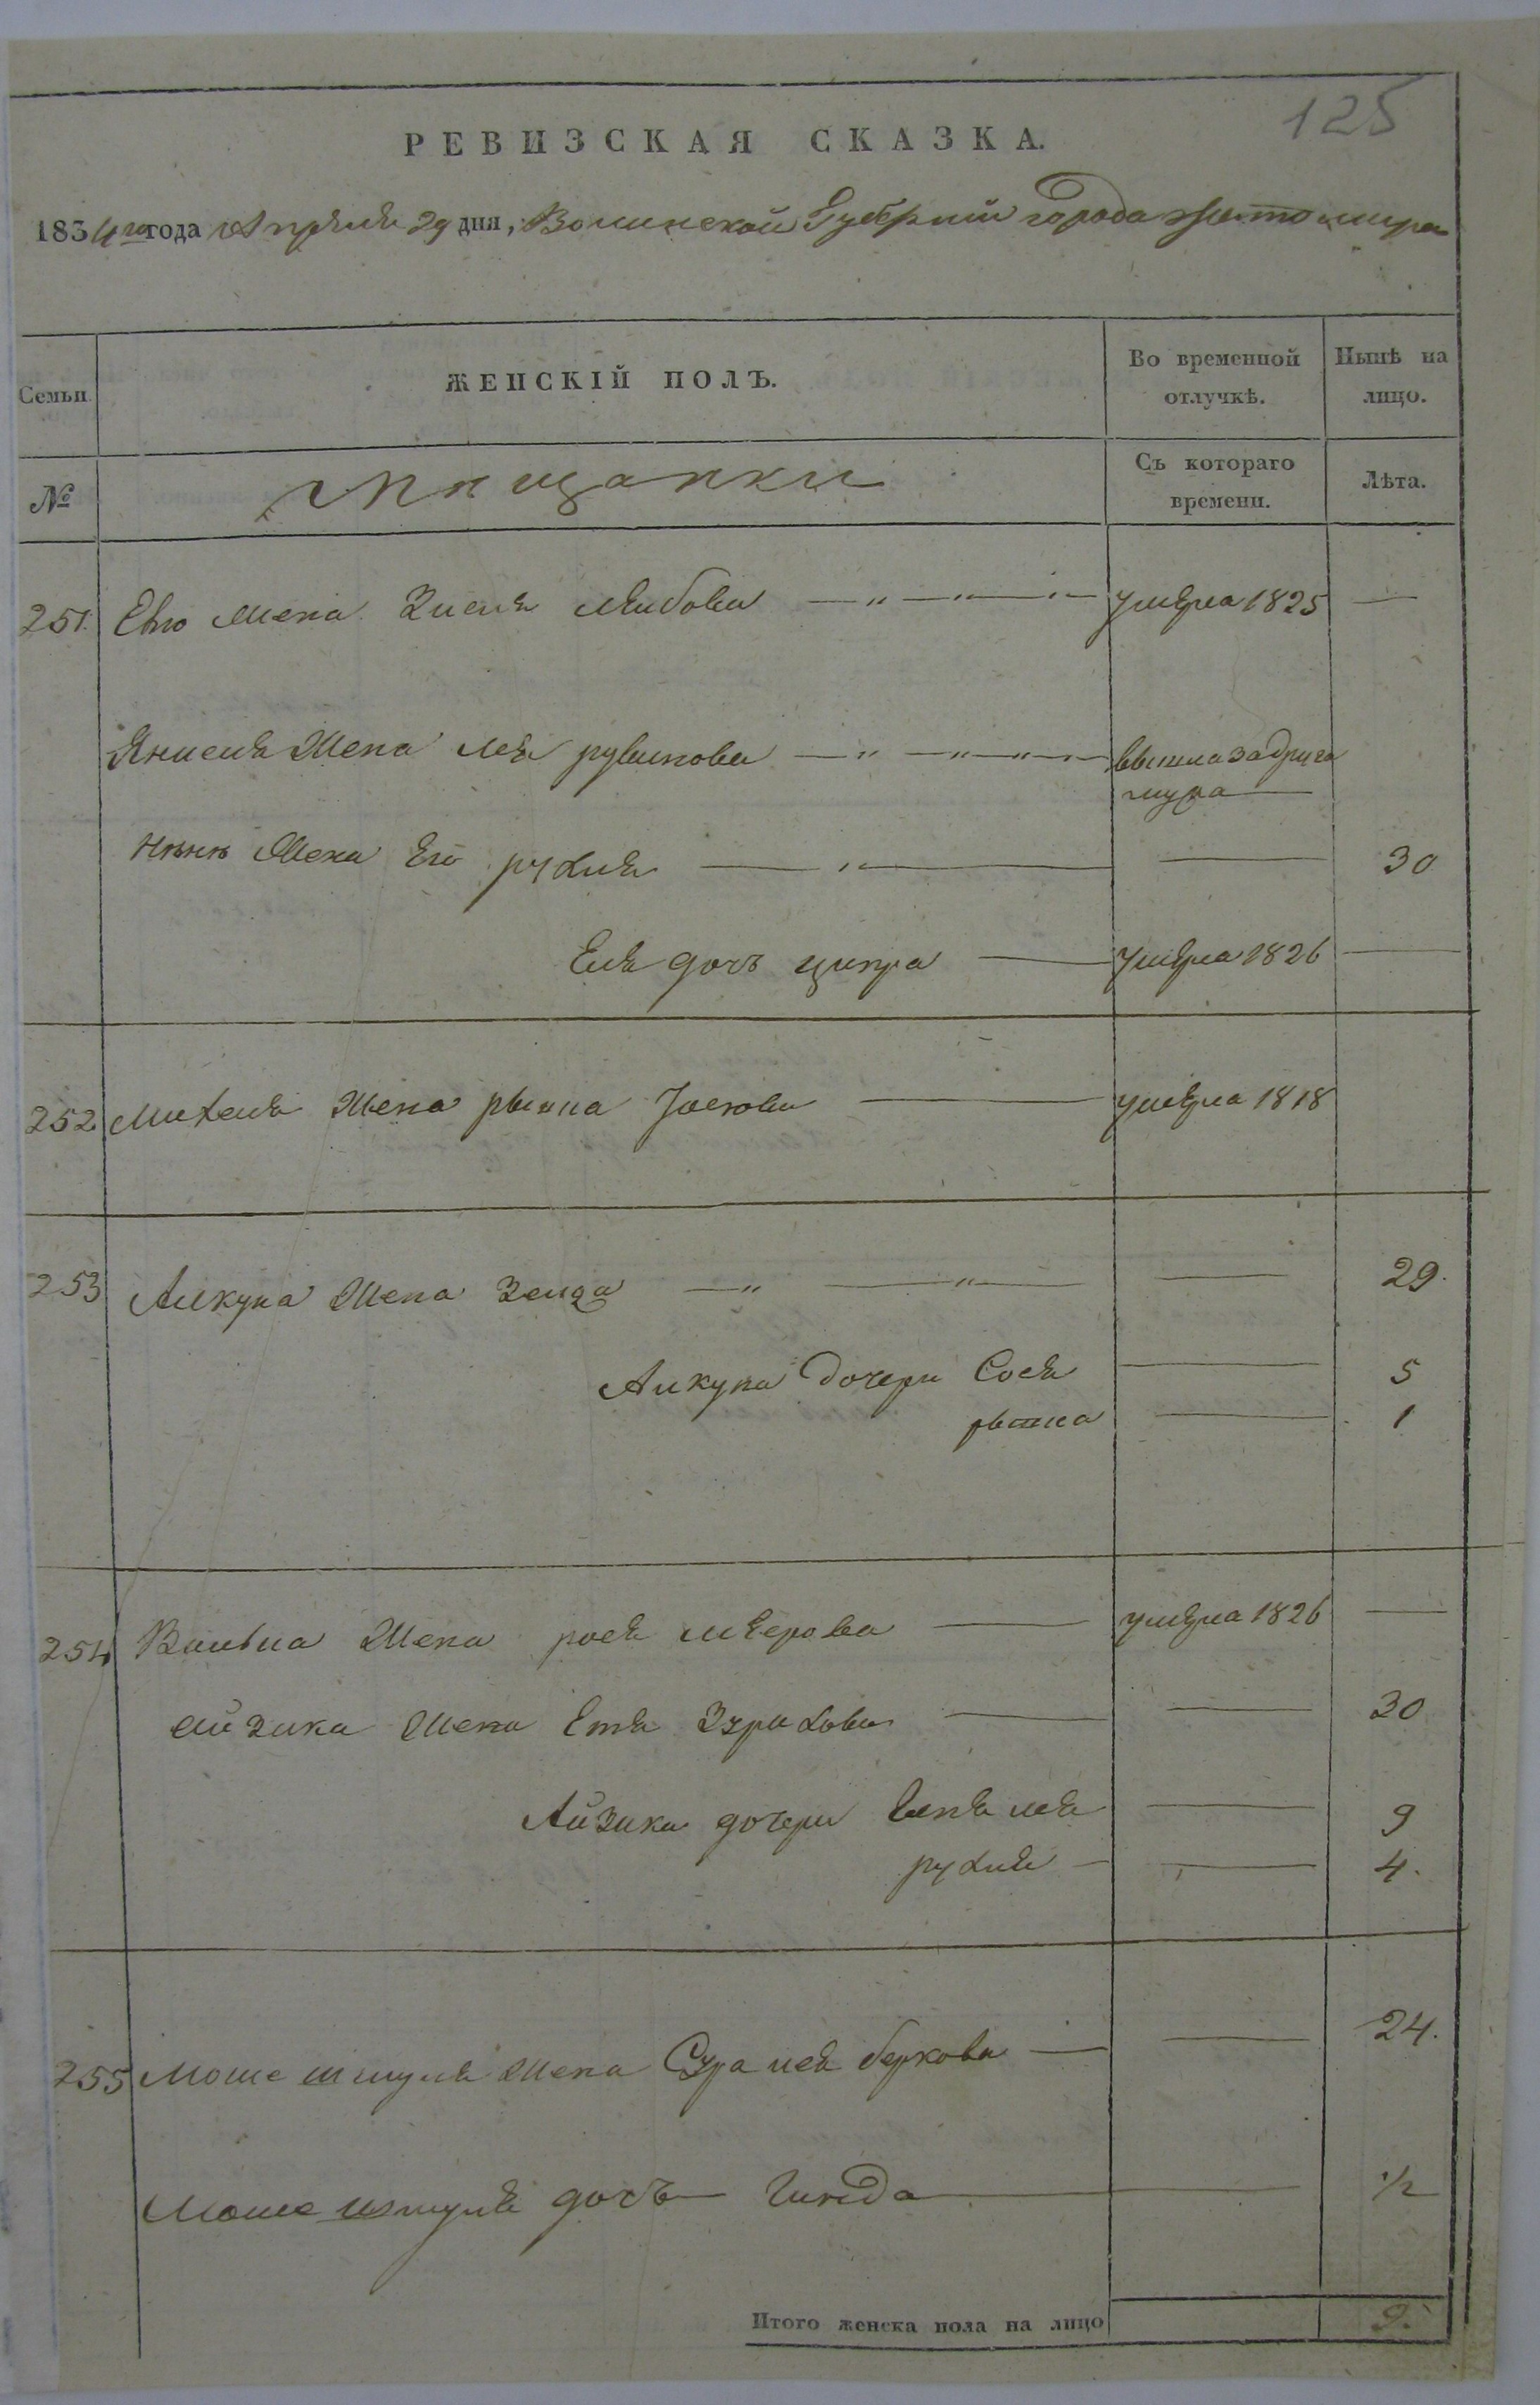 125
РЕВИЗСКАЯ СКАЗКА.
1834го года Апреля 29 дня, Волинской Губернии города Житомира
Семьи. ЖЕНСКІЙ ПОЛЪ. Во временной отлучкѣ. Нынѣ на лицо.
№ Мищанки Съ котораго времени. Лѣта.
251. Евно Жена Зисля Лейбова — умерла 1825 —
Янкеля Жена Лея рувинова — вышла за друга
мужа
Жена Его рухля — — 30
Еля дочь ципра — умерла 1826 —
252. Михеля Жена рыкла — умерла 1818
253 Жена Зенда — — 29.
дочери Сося — 5
— 1
254 Вольва Жена рося меерова — умерла 1826 —
айзика Жена Етя — — 30
Айзика дочери лея — 9
рухля — — 4.
255 Моше шмуля Жена Сура лея беркова — — 24.
Моше шмуля дочь Гинда — — 1/2
Итого женска пола на лицо 9.